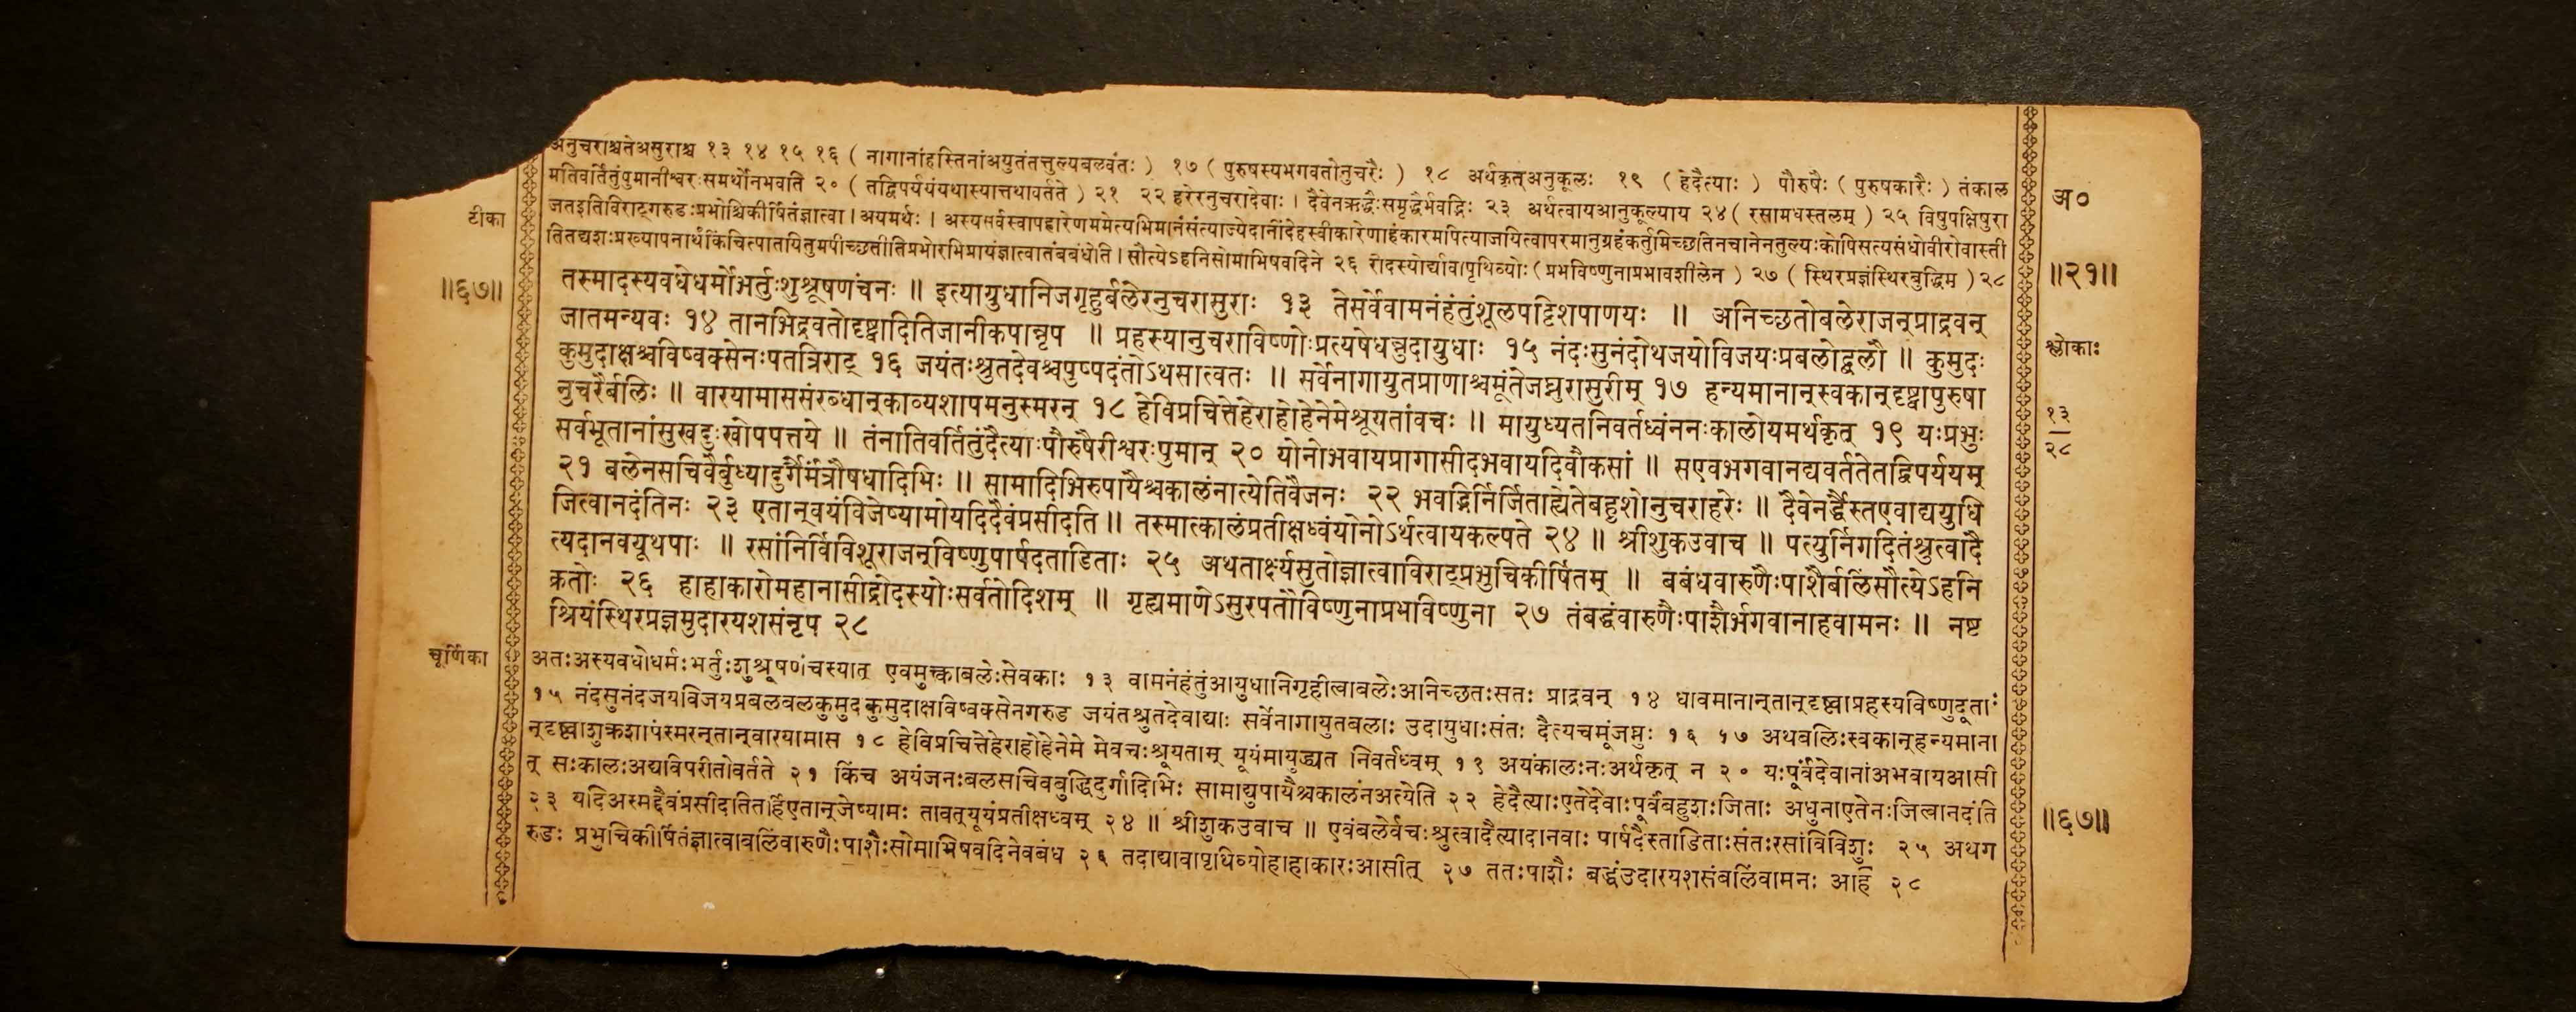 अनुचराश्चतेअसुराश्च १३ १४ १५ १६ ( नागानांहस्तिनांअयुतंतत्तुल्यबलवंतः ) १७ ( पुरुषस्यभगवतोनुचरैः ) १८ अर्थकृत्अनुकूलः १९ ( हेदैत्याः ) पौरुषैः ( पुरुषकारैः ) तंकाल
मतिवर्तितुंपुमानीश्वरःसमर्थोनभवति २० ( तद्विपर्ययंयथास्यात्तथावर्तते ) २१ २२ हरेरनुचरादेवाः । दैवेनऋद्धैःसमृद्धैर्भवद्भिः २३ अर्थत्वायआनुकूल्याय २४ ( रसामधस्तलम् ) २५ विषुपक्षिषुरा
अ०
टीका
जतइतिविराट्गरुडःप्रभोश्चिकीर्षितंज्ञात्वा । अयमर्थः । अस्यसर्वस्वापहारेणममेत्यभिमानंसंत्याज्येदानींदेहस्वीकारेणाहंकारमपित्याजयित्वापरमानुग्रहंकर्तुमिच्छतिनचानेनतुल्यःकोपिसत्यसंधोवीरोवास्ती
तितद्यशःप्रख्यापनार्थंकिंचित्पातयितुमपीच्छतीतिप्रभोरभिप्रायंज्ञात्वातंबबंधेति । सौत्येऽहनिसोमाभिषवदिने २६ रोदस्योर्द्यावापृथिव्योः ( प्रभविष्णुनाप्रभावशीलेन ) २७ ( स्थिरप्रज्ञंस्थिरबुद्धिम ) २८
॥६७॥
॥२१॥
तस्मादस्यवधेधर्मोभर्तुःशुश्रूषणंचनः ॥ इत्यायुधानिजगृहुर्बलेरनुचरासुराः १३ तेसर्वेवामनंहंतुंशूलपट्टिशपाणयः ॥ अनिच्छतोबलेराजन्प्राद्रवन्
जातमन्यवः १४ तानभिद्रवतोदृष्ट्वादितिजानीकपान्नृप ॥ प्रहस्यानुचराविष्णोःप्रत्यषेधन्नुदायुधाः १५ नंदःसुनंदोथजयोविजयःप्रबलोद्बलौ ॥ कुमुदः
श्लोकाः
कुमुदाक्षश्चविष्वक्सेनःपतत्रिराट् १६ जयंतःश्रुतदेवश्चपुष्पदंतोऽथसात्वतः ॥ सर्वेनागायुतप्राणाश्चमूंतेजघ्नुरासुरीम् १७ हन्यमानान्स्वकान्दृष्ट्वापुरुषा
नुचरैर्बलिः ॥ वारयामाससंरब्धान्काव्यशापमनुस्मरन् १८ हेविप्रचित्तेहेराहोहेनेमेश्रूयतांवचः ॥ मायुध्यतनिवर्तध्वंननःकालोयमर्थकृत् १९ यःप्रभुः
१३
२८
सर्वभूतानांसुखदुःखोपपत्तये ॥ तंनातिवर्तितुंदैत्याःपौरुषैरीश्वरःपुमान् २० योनोभवायप्रागासीदभवायदिवौकसां ॥ सएवभगवानद्यवर्ततेतद्विपर्ययम्
२१ बलेनसचिवैर्बुध्यादुर्गैर्मंत्रौषधादिभिः ॥ सामादिभिरुपायैश्चकालंनात्येतिवैजनः २२ भवद्भिर्निर्जिताह्येतेबहुशोनुचराहरेः ॥ दैवेनर्द्धैस्तएवाद्ययुधि
जित्वानदंतिनः २३ एतान्वयंविजेष्यामोयदिदैवंप्रसीदति ॥ तस्मात्कालंप्रतीक्षध्वंयोनोऽर्थत्वायकल्पते २४ ॥ श्रीशुकउवाच ॥ पत्युर्निगदितंश्रुत्वादै
त्यदानवयूथपाः ॥ रसांनिर्विविशूराजन्विष्णुपार्षदताडिताः २५ अथतार्क्ष्यसुतोज्ञात्वाविराट्प्रभुचिकीर्षितम् ॥ बबंधवारुणैःपाशैर्बलिंसौत्येऽहनि
क्रतोः २६ हाहाकारोमहानासीद्रोदस्योःसर्वतोदिशम् ॥ गृह्यमाणेऽसुरपतौविष्णुनाप्रभविष्णुना २७ तंबद्धंवारुणैःपाशैर्भगवानाहवामनः ॥ नष्ट
श्रियंस्थिरप्रज्ञमुदारयशसंनृप २८
चूर्णिका
अतःअस्यवधोधर्मःभर्तुःशुश्रूषणंचस्यात् एवमुक्त्काबलेःसेवकाः १३ वामनंहंतुंआयुधानिगृहीत्वाबलेःअनिच्छतःसतः प्राद्रवन् १४ धावमानान्तान्दृष्ट्वाप्रहस्यविष्णुदूताः
१५ नंदसुनंदजयविजयप्रबलबलकुमुदकुमुदाक्षविष्वक्सेनगरुड जयंतश्रुतदेवाद्याः सर्वेनागायुतबलाः उदायुधाःसंतः दैत्यचमूंजघ्नुः १६ १७ अथबलिःस्वकान्हन्यमाना
न्दृष्ट्वाशुक्रशापंस्मरन्तान्वारयामास १८ हेविप्रचित्तेहेराहोहेनेमे मेवचःश्रूयताम् यूयंमायुद्ध्यत निवर्तध्वम् १९ अयंकालःनःअर्थकृत् न २० यःपूर्वंदेवानांअभवायआसी
त् सःकालःअद्यविपरीतोवर्तते २१ किंच अयंजनःबलसचिवबुद्धिदुर्गादिभिः सामाद्युपायैश्चकालंनअत्येति २२ हेदैत्याःएतेदेवाःपूर्वंबहुशःजिताः अधुनाएतेनःजित्वानदंति
२३ यदिअस्मद्दैवंप्रसीदतितर्हिएतान्जेष्यामः तावत्यूयंप्रतीक्षध्वम् २४ ॥ श्रीशुकउवाच ॥ एवंबलेर्वचःश्रुत्वादैत्यादानवाः पार्षदैस्ताडिताःसंतःरसांविविशुः २५ अथग
॥६७॥
रुडः प्रभुचिकीर्षितंज्ञात्वाबलिंवारुणैःपाशैःसोमाभिषवदिनेबबंध २६ तदाद्यावापृथिव्योहाहाकारःआसीत् २७ ततःपाशैः बद्धंउदारयशसंबलिंवामनः आह २८